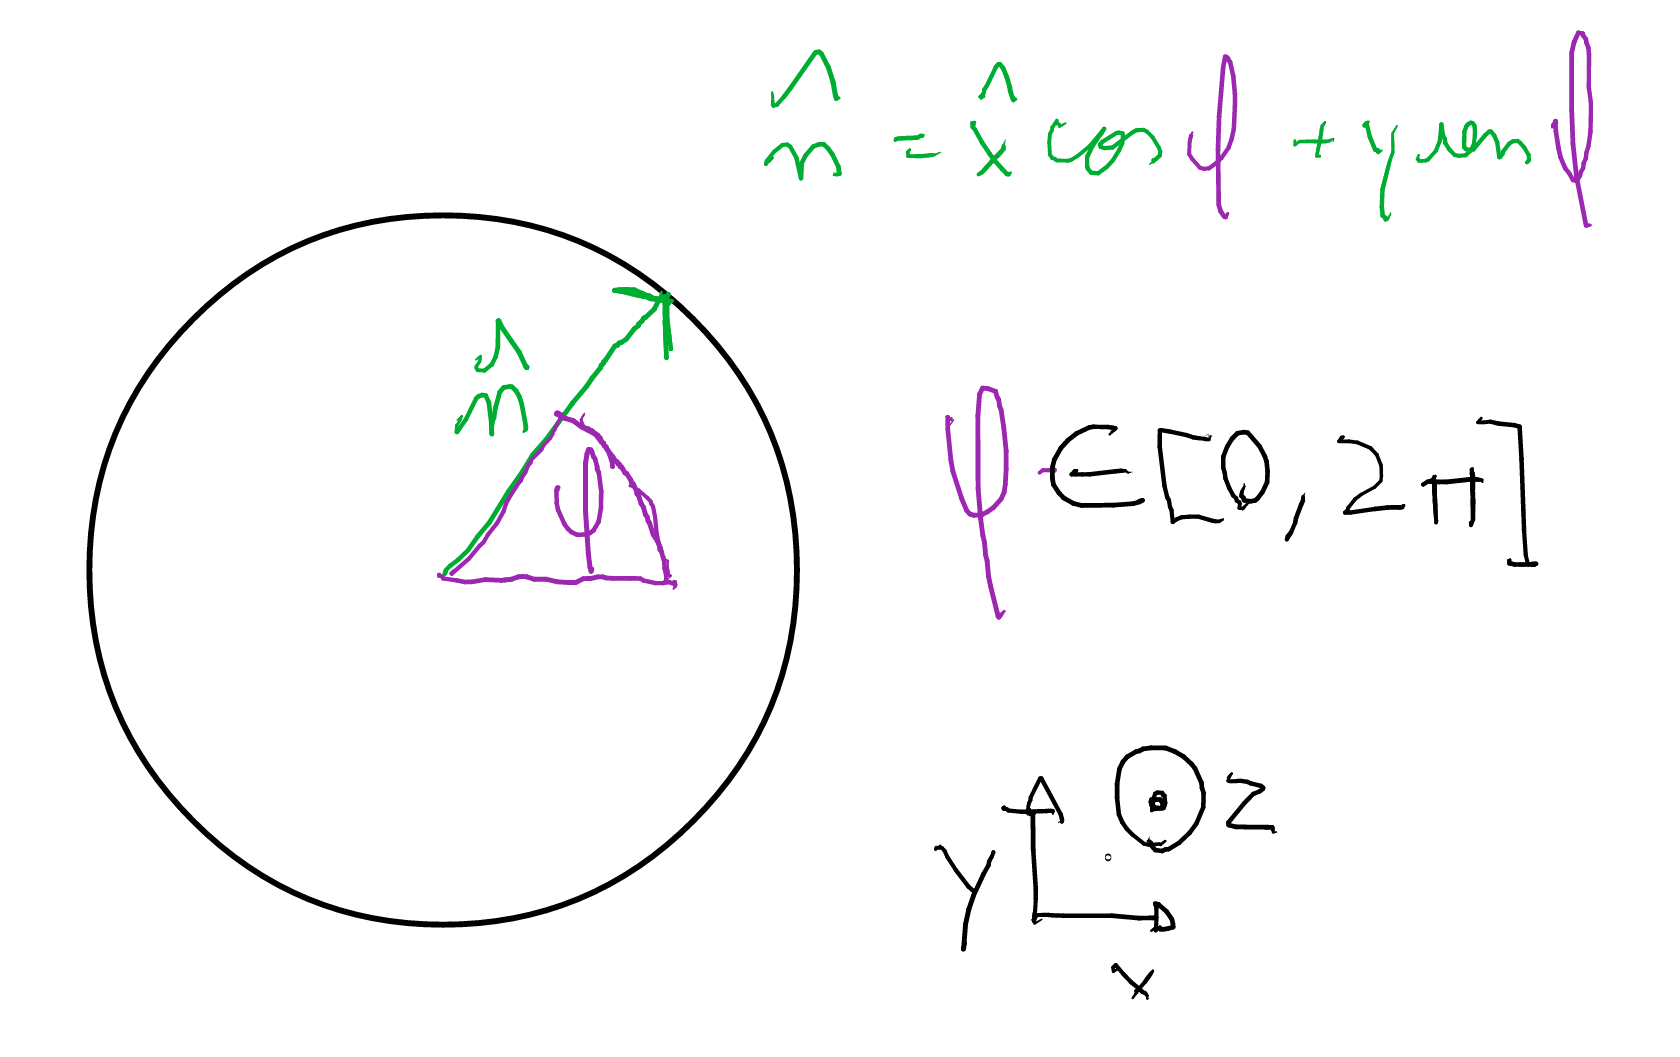 n̂ = x̂ cos φ + y sen φ
n̂
φ
φ ∈ [0, 2π]
z
y
x